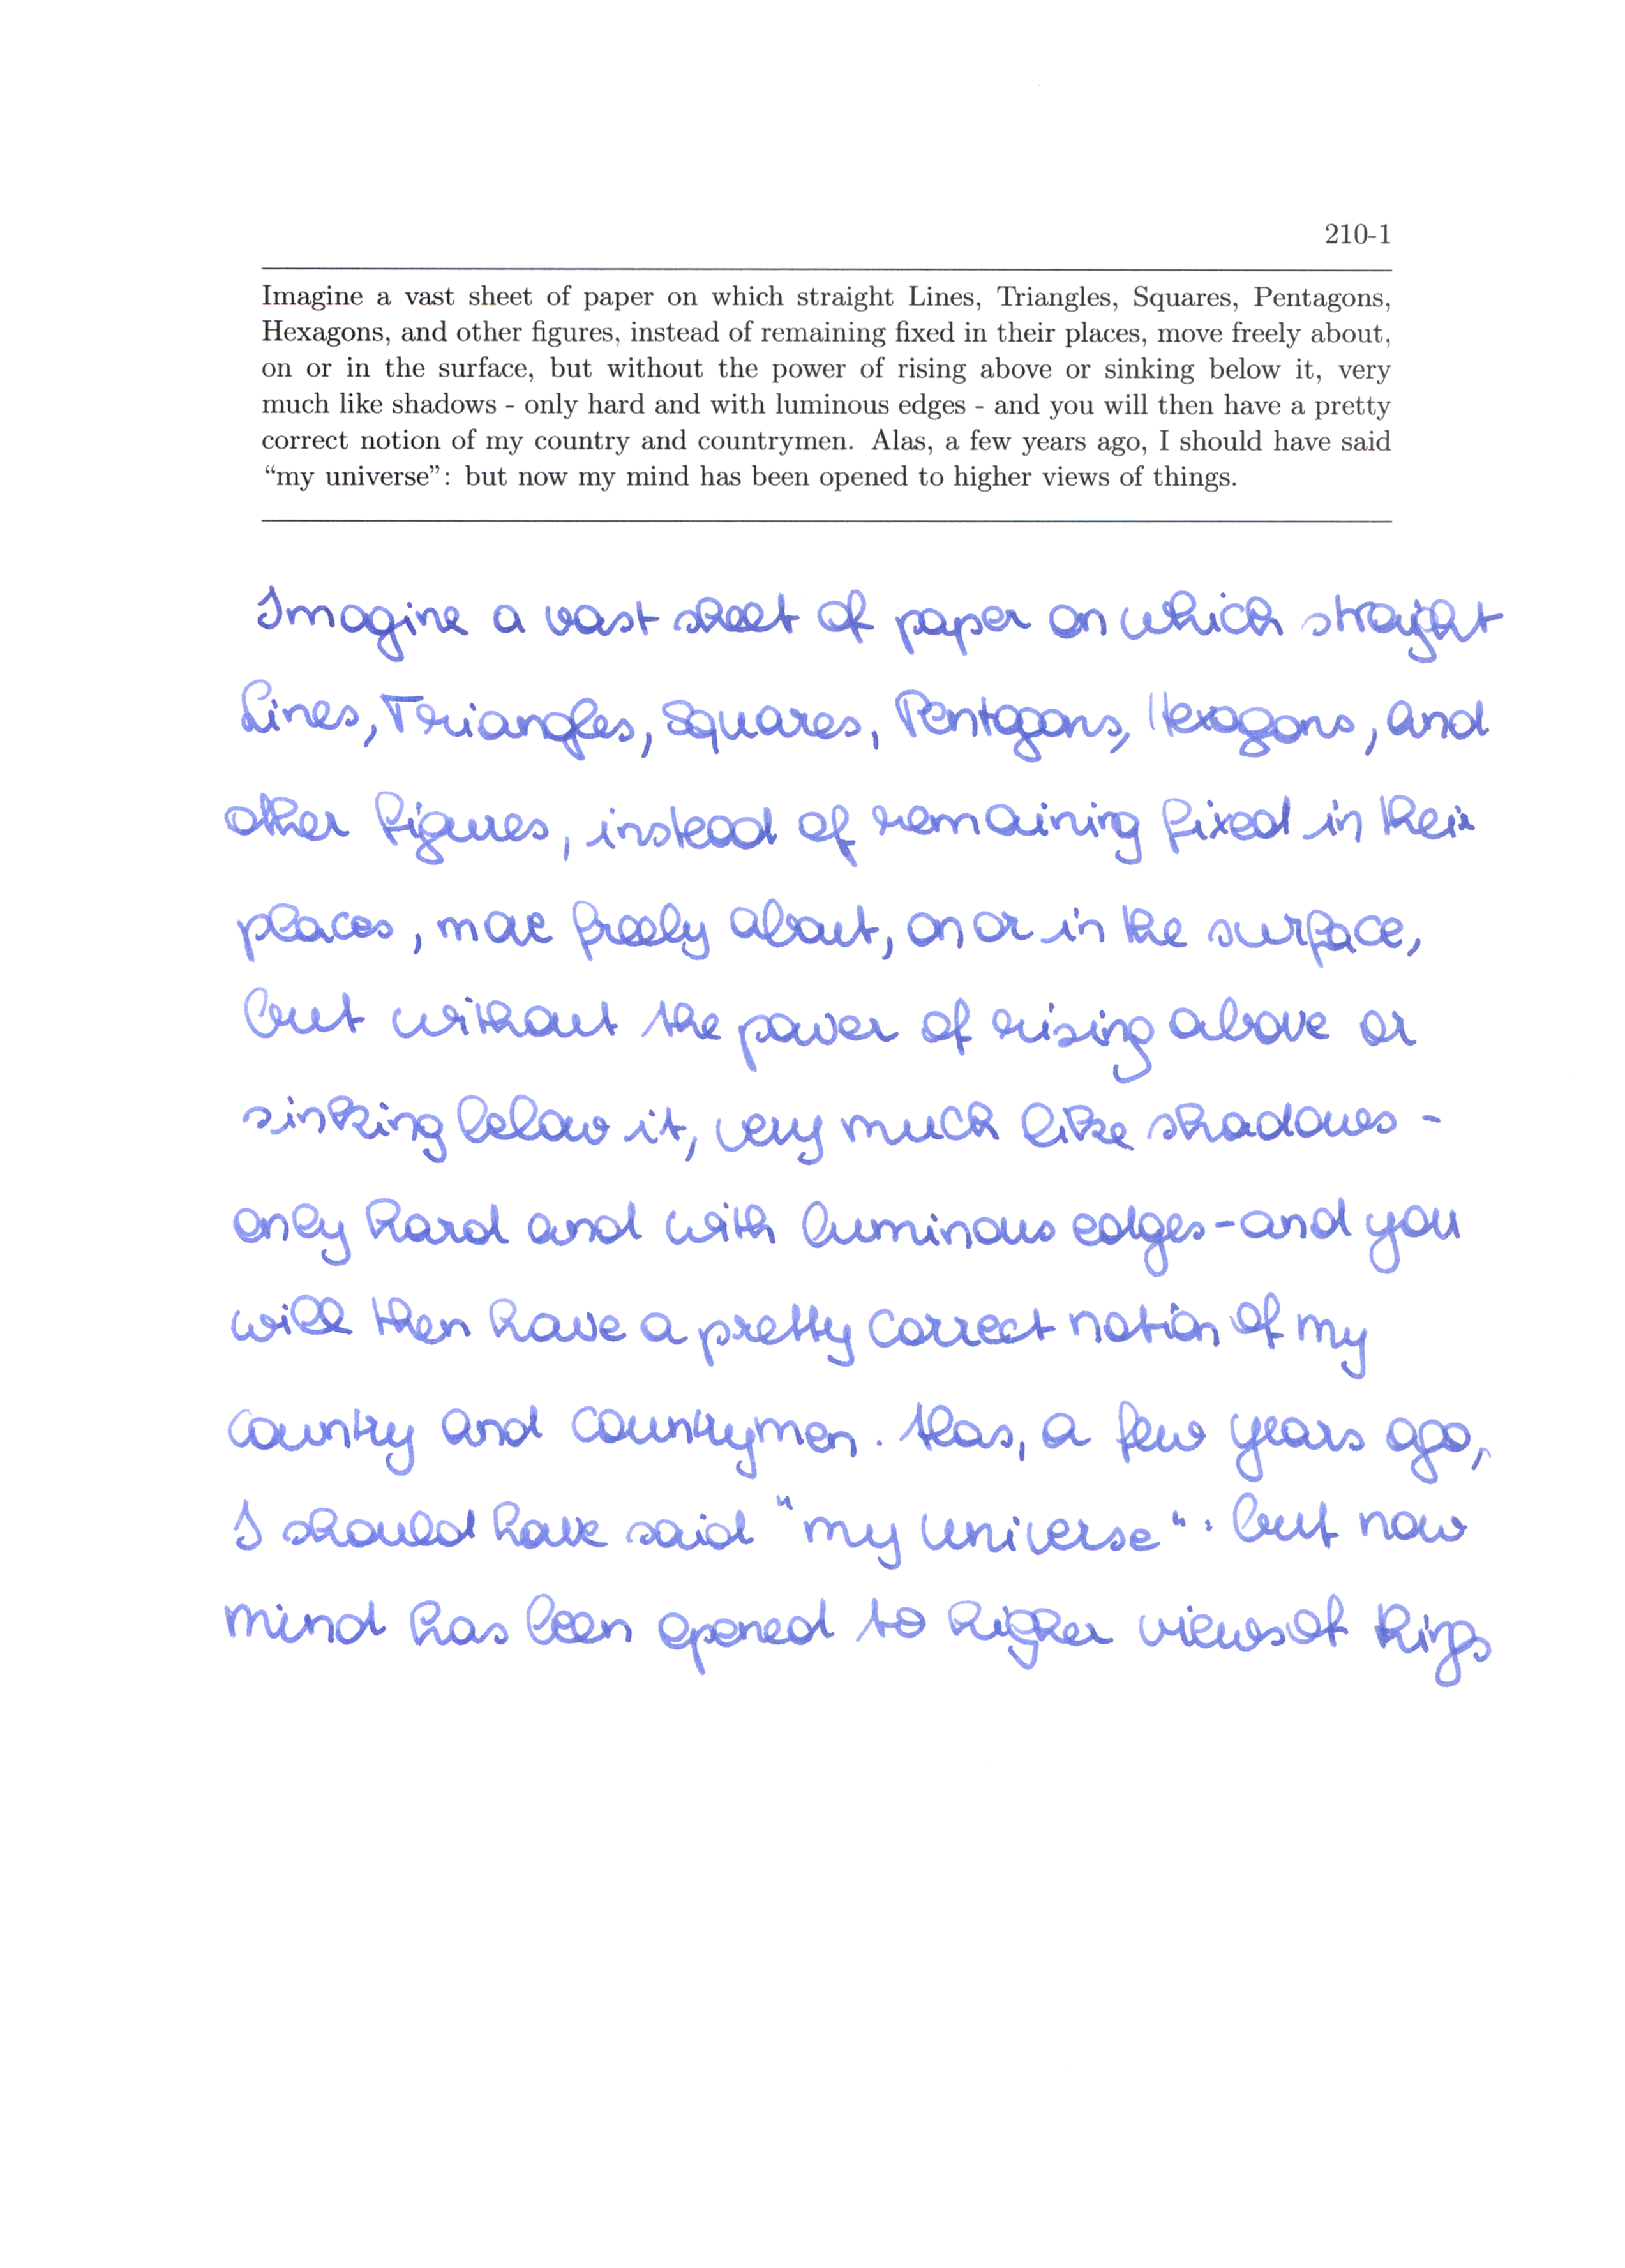 210-1
Imagine a vast sheet of paper on which straight Lines, Triangles, Squares, Pentagons,
Hexagons, and other figures, instead of remaining fixed in their places, move freely about,
on or in the surface, but without the power of rising above or sinking below it, very
much like shadows - only hard and with luminous edges - and you will then have a pretty
correct notion of my country and countrymen. Alas, a few years ago, I should have said
“my universe”: but now my mind has been opened to higher views of things.
Imagine a vast sheet of paper on which straight
Lines, Triangles, Squares, Pentagons, Hexagons, and
other figures, instead of remaining fixed in their
places, move freely about, on or in the surface,
but without the power of rising above or
sinking below it, very much like shadows -
only hard and with luminous edges - and you
will then have a pretty correct notion of my
country and countrymen. Alas, a few years ago,
I should have said "my universe": but now
mind has been opened to higher views of things